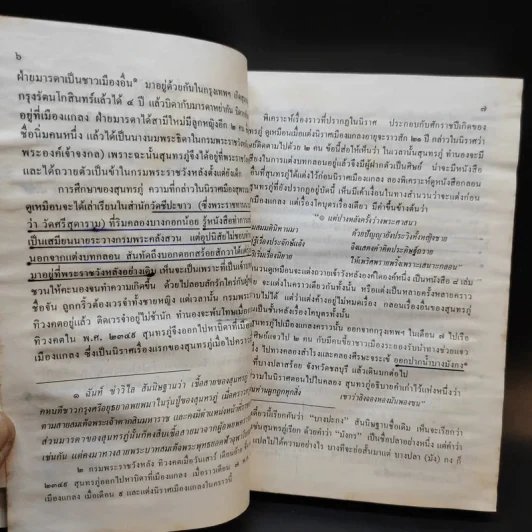 ๖
ฝ่ายมารดาเป็นชาวเมืองอื่น๑ มาอยู่ด้วยกันในกรุงเทพฯ
กรุงรัตนโกสินทร์แล้วได้ ๔ ปี แล้วบิดากับมารดาหย่ากัน
อยู่ที่เมืองแกลง ฝ่ายมารดาได้สามีใหม่มีลูกหญิงอีก ๒ คน
ชื่อนิ่มคนหนึ่ง แล้วได้เป็นนางนมพระธิดาในกรมพระราชวัง
พระองค์เจ้าจงกล) เพราะฉะนั้นสุนทรภู่จึงได้อยู่ที่พระราชวัง
และได้ถวายตัวเป็นข้าในกรมพระราชวังหลังตั้งแต่ยังเด็ก
การศึกษาของสุนทรภู่ ความที่กล่าวในนิราศเมืองสุพรรณ
ดูเหมือนจะได้เล่าเรียนในสำนักวัดชีปะขาว (ซึ่งพระราชทานนาม
ว่า วัดศรีสุดาราม) ที่ริมคลองบางกอกน้อย รู้หนังสือทำการ
เป็นเสมียนนายระวางกรมพระคลังสวน แต่อุปนิสัยไม่ชอบทำ
นอกจากแต่งบทกลอน สันทัดถึงบอกดอกสร้อยสักวาได้
มาอยู่ที่พระราชวังหลังอย่างเดิม เห็นจะเป็นเพราะที่เป็น
ชวนให้คะนองจนทำความเกิดขึ้น ด้วยไปลอบลักรักใคร่กับ
ชื่อจัน ถูกกริ้วต้องเวรจำทั้งชายหญิง แต่เวลานั้น กรมพระ
ทิวงคตอยู่แล้ว ติดเวรจำอยู่ไม่ช้านัก ทำนองจะพ้นโทษเมื่อ
ทิวงคตใน พ.ศ. ๒๓๔๙ สุนทรภู่จึงออกไปหาบิดาที่เมือง
เมืองแกลง ซึ่งเป็นนิราศเรื่องแรกของสุนทรภู่เมื่อไป
๑ ฉันท์ ขำวิไล สันนิษฐานว่า เชื้อสายของสุนทรภู่
คนบดีชาวกรุงศรีอยุธยาอพยพมาในรุ่นปู่ของสุนทรภู่
ตามสายสมเด็จพระเจ้าตากสินมหาราช และคงมีตำแหน่งหน้าที่
ส่วนมารดาของสุนทรภู่นั้นก็คงสืบเชื้อสายมาจากผู้อพยพ
เช่นกัน แต่คงมาทางสายพระบาทสมเด็จพระพุทธยอดฟ้าจุฬาโลก
๒ กรมพระราชวังหลัง ทิวงคตเมื่อวันเสาร์ เดือนอ้าย
๒๓๔๙ สุนทรภู่ออกไปหาบิดาที่เมืองแกลง เมื่อราวเดือน ๗
เมืองแกลง เมื่อเดือน ๙ และแต่งนิราศเมืองแกลงในคราวนี้
๗
พิเคราะห์เรื่องราวที่ปรากฏในนิราศ ประกอบกับศักราชปีเกิดของ
ดูเหมือนเมื่อแต่งนิราศเมืองแกลงอายุจะราวสัก ๒๑ ปี กล่าวในนิราศว่า
ติดตามไปด้วย ๒ คน ข้อนี้ส่อให้เห็นว่า ในเวลานั้นสุนทรภู่ ทำนองจะมี
ในการแต่งบทกลอนอยู่แล้วจึงมีผู้ฝากตัวเป็นศิษย์ น่าจะมีหนังสือ
ที่สุนทรภู่ได้แต่งไว้ก่อนนิราศเมืองแกลง ลองพิเคราะห์ดูหนังสือกลอน
สุนทรภู่ที่ยังปรากฏอยู่บัดนี้ เห็นมีเค้าเงื่อนในทางสำนวนว่าจะแต่งก่อน
เมืองแกลง แต่เรื่องโคบุตรเรื่องเดียว มีคำขึ้นข้างต้นว่า
“๏ แต่ปางหลังครั้งว่างพระศาสนา
ด้วยปัญญายังประวิงทั้งหญิงชาย
ฉันแสดงคำคิดประดิษฐ์ถวาย
ให้เพริศพรายพริ้งเพราะเสนาะกลอน”
ดูเหมือนจะแต่งถวายเจ้าวังหลังองค์ใดองค์หนึ่ง เป็นหนังสือ ๘ เล่ม
จะแต่งในคราวเดียวกันทั้งนั้น หรือแต่งเป็นหลายครั้งหลายคราว
ไม่ได้ แต่ว่าแต่งค้างอยู่ไม่หมดเรื่อง กลอนเรื่องอื่นของสุนทรภู่
เป็นชั้นหลังเรื่องโคบุตรทั้งนั้น
สุนทรภู่ไปเมืองแกลงคราวนั้น ออกจากกรุงเทพฯ ในเดือน ๗ ไปเรือ
ศิษย์แจวไป ๒ คน กับมีคนขี้ยาชาวเมืองระยองรับนำทางช่วยแจว
ไปทางคลองสำโรงและคลองศีรษะจระเข้ ออกปากน้ำบางมังกง๑
ที่บางปลาสร้อย จังหวัดชลบุรี แล้วเดินบกต่อไป
ในนิราศตอนไปในคลอง สุนทรภู่อธิบายคำเก่าไว้แห่งหนึ่งว่า
เขาว่าลิงจองหองมันพองขน”
เดี๋ยวนี้เรียกกันว่า “บางปะกง” สันนิษฐานชื่อเดิม เห็นจะเรียกว่า
เช่นสุนทรภู่เรียก ด้วยคำว่า “มังกง” เป็นชื่อปลาอย่างหนึ่ง แต่คำว่า
แปลไม่ได้ความอย่างไร บางทีจะย่อสั้นมาแต่ บางปลา (มัง) กง ก็